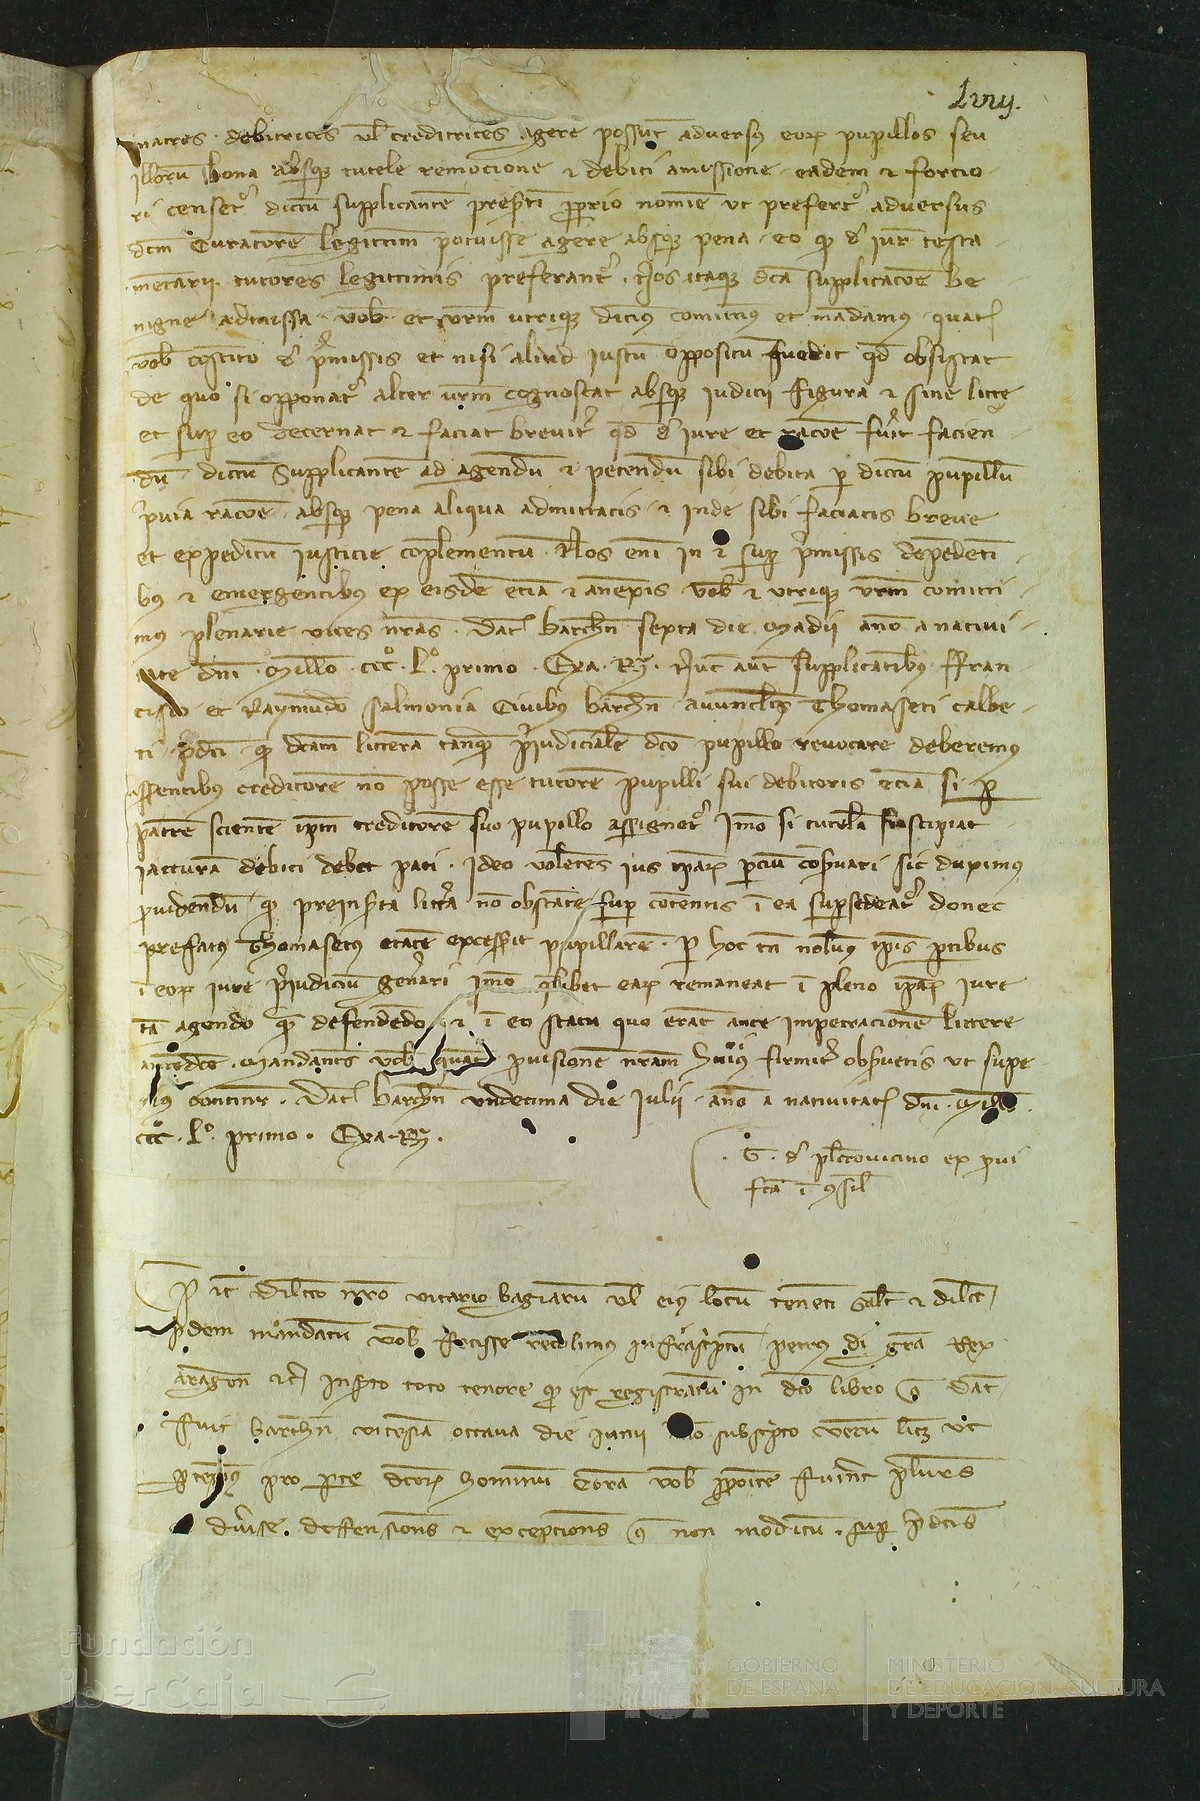 Lviij.
matres debitrices vel creditrices agere possunt adversus eorum pupillos seu
illorum bona absque tutele remocione et debiti amissione eadem et forcio
ri censetur dictum supplicantem presenti proprio nomine ut prefertur adversus
dictum Curatorem legittimum potuisse agere absque pena eo quod de iure testa
mentarii tutores legittimis preferantur. Nos itaque dicta supplicacione be
nigne admissa vobis et vestrum utrique dicimus comittimus et mandamus quatenus
vobis constito de premissis et nisi aliud iustum oppositum fuerit quod obsistat
de quo si opponatur alter vestrum cognoscat absque iudicii figura et sine lite
et super eo decernat et faciat breviter quod de iure et racione fuerit facien
dum dictum supplicantem ad agendum et petendum sibi debita per dictum pupillum
previa racione absque pena aliqua admittatis et inde sibi faciatis breve
et expeditum iusticie complementum. Nos enim in et super premissis dependenti
bus et emergentibus ex eisdem etiam et annexis vobis et utrique vestrum comitti
mus plenarie vices nostras. Dat. Barchn. sexta die Madii anno a nativi
tate domini Millo. CCCº. Lº. primo. Exa. Rª. Nunc autem supplicantibus Fran
cisco et Raymundo salmonia Civibus Barchn. avunculis Thomaseti calbe
ti predicti quod dictam litteram tanquam preiudicialem dicto pupillo revocare deberemus
asserentibus creditorem non posse esse tutorem pupilli sui debitoris etiam si per
patrem scientem ipsum creditorem suo pupillo assignetur Imo si tutelam suscipiat
iacturam debiti debet pati. Ideo volentes ius ipsarum partium conservari sic duximus
providendum quod preinserta littera non obstante super contentis in ea supersedeatur donec
prefatus Thomasetus etatem excesserit pupillarem. Per hoc tamen nolumus ipsis partibus
in eorum iure preiudicium generari imo quilibet earum remaneat in pleno ipsarum iure
tam agendo quam defendendo et in eo statu quo erant ante impetracionem littere
antedicte. Mandantes vobis quatenus provisionem nostram huiusmodi firmiter observetis ut supe
rius continetur. Dat. Barchn. undecima die Julii anno a nativitate domini Millo.
CCCº. Lº. primo. Exa. Rª.
G. de ex provi
facta in consil
Petrus etc. Dilecto nostro vicario bagiarum vel eius locum tenenti salutem et dilect.
Pridem mandatum vobis fecisse recolimus infrascriptum petrus dei gracia Rex
aragon. etc. inserto toto tenore quod est registratum in dicto libro Dat.
fuit barchn. vicesima octava die junii anno subscripto verum licet ut
pro parte dictorum hominum coram vobis proposite fuerint plures
diverse deffensiones et excepciones non modicum super predictis